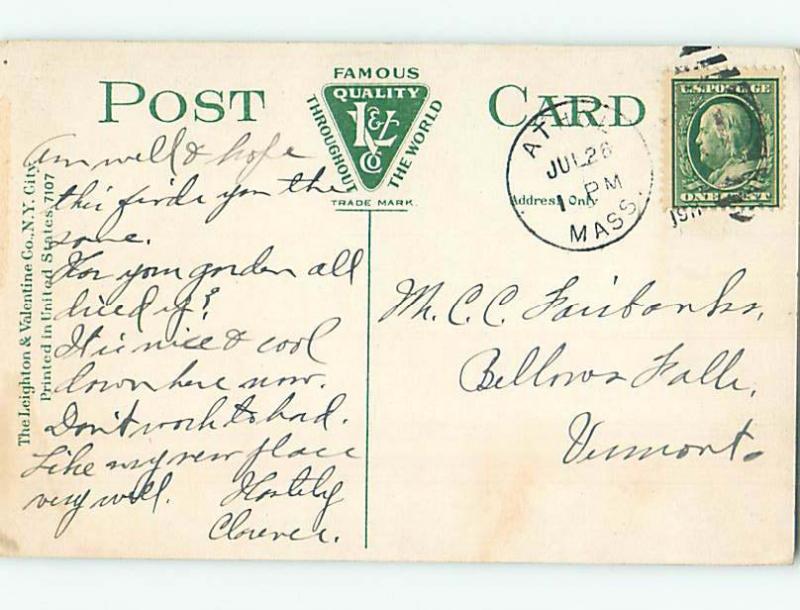 POST CARD
FAMOUS
QUALITY
L&V
Co
THROUGHOUT
THE WORLD
TRADE MARK.
Address Only.
ATHOL
JUL 28
1 PM
MASS.
U.S. POSTAGE
ONE CENT
The Leighton & Valentine Co., N.Y. City.
Printed in United States. 7107
Am well & hope
this finds you the
same.
Has your garden all
dried up?
It is nice & cool
down here now.
Don't work to hard.
Like my new place
very well. Hastily
Clarence.
Mr. C. C. Fairbanks,
Bellows Falls,
Vermont.